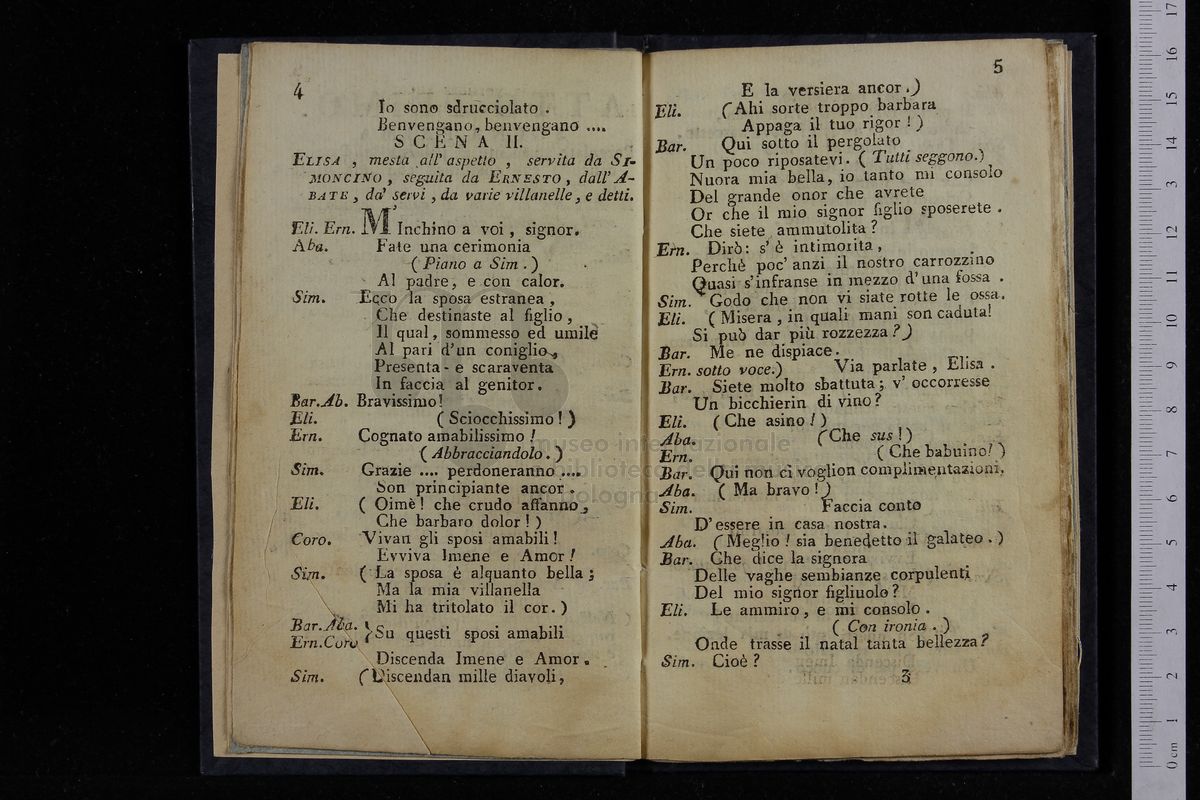 4
Io sono sdrucciolato .
Benvengano, benvengano ....
SCENA II.
ELISA , mesta all' aspetto , servita da SI-
MONCINO , seguita da ERNESTO , dall' A-
BATE , da' servi , da varie villanelle , e detti.
Eli. Ern. M' Inchino a voi , signor.
Aba. Fate una cerimonia
( Piano a Sim . )
Al padre, e con calor.
Sim. Ecco la sposa estranea ,
Che destinaste al figlio ,
Il qual, sommesso ed umile
Al pari d'un coniglio,
Presenta - e scaraventa
In faccia al genitor.
Bar. Ab. Bravissimo!
Eli. ( Sciocchissimo ! )
Ern. Cognato amabilissimo !
( Abbracciandolo . )
Sim. Grazie .... perdoneranno ....
Son principiante ancor .
Eli. ( Oimè ! che crudo affanno ,
Che barbaro dolor ! )
Coro. Vivan gli sposi amabili !
Evviva Imene e Amor !
Sim. ( La sposa è alquanto bella ;
Ma la mia villanella
Mi ha tritolato il cor. )
Bar. Aba.
Ern. Coro } Su questi sposi amabili
Discenda Imene e Amor .
Sim. ( Discendan mille diavoli ,
5
E la versiera ancor . )
Eli. ( Ahi sorte troppo barbara
Appaga il tuo rigor ! )
Bar. Qui sotto il pergolato
Un poco riposatevi. ( Tutti seggono. )
Nuora mia bella, io tanto mi consolo
Del grande onor che avrete
Or che il mio signor figlio sposerete .
Che siete ammutolita ?
Ern. Dirò : s' è intimorita ,
Perchè poc' anzi il nostro carrozzino
Quasi s' infranse in mezzo d' una fossa .
Sim. Godo che non vi siate rotte le ossa.
Eli. ( Misera , in quali mani son caduta!
Si può dar più rozzezza ? )
Bar. Me ne dispiace.
Ern. sotto voce.) Via parlate , Elisa .
Bar. Siete molto sbattuta ; v' occorresse
Un bicchierin di vino ?
Eli. ( Che asino ! )
Aba. ( Che sus ! )
Ern. ( Che babuino! )
Bar. Qui non ci voglion complimentazioni.
Aba. ( Ma bravo ! )
Sim. Faccia conto
D' essere in casa nostra.
Aba. ( Meglio ! sia benedetto il galateo . )
Bar. Che dice la signora
Delle vaghe sembianze corpulenti
Del mio signor figliuolo ?
Eli. Le ammiro , e mi consolo .
( Con ironia . )
Onde trasse il natal tanta bellezza ?
Sim. Cioè ?
3
museo internazionale
biblioteca della
bologna
0 cm 1 2 3 4 5 6 7 8 9 10 11 12 13 14 15 16 17